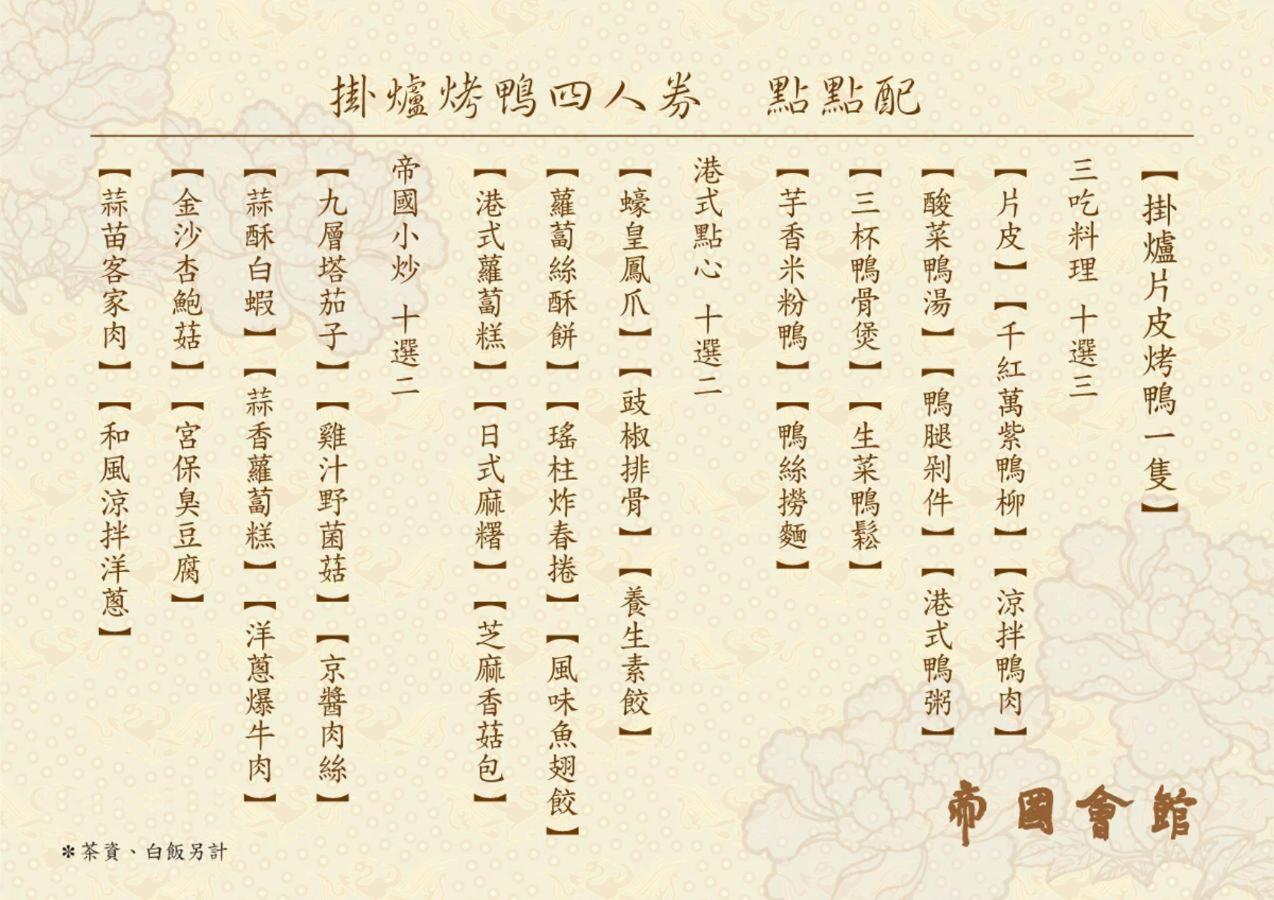 掛爐烤鴨四人券　點點配
【掛爐片皮烤鴨一隻】
三吃料理 十選三
【片皮】【千紅萬紫鴨柳】【涼拌鴨肉】
【酸菜鴨湯】【鴨腿剁件】【港式鴨粥】
【三杯鴨骨煲】【生菜鴨鬆】
【芋香米粉鴨】【鴨絲撈麵】
港式點心 十選二
【蠔皇鳳爪】【豉椒排骨】【養生素餃】
【蘿蔔絲酥餅】【瑤柱炸春捲】【風味魚翅餃】
【港式蘿蔔糕】【日式麻糬】【芝麻香菇包】
帝國小炒 十選二
【九層塔茄子】【雞汁野菌菇】【京醬肉絲】
【蒜酥白蝦】【蒜香蘿蔔糕】【洋蔥爆牛肉】
【金沙杏鮑菇】【宮保臭豆腐】
【蒜苗客家肉】【和風涼拌洋蔥】
帝國會館
＊茶資、白飯另計